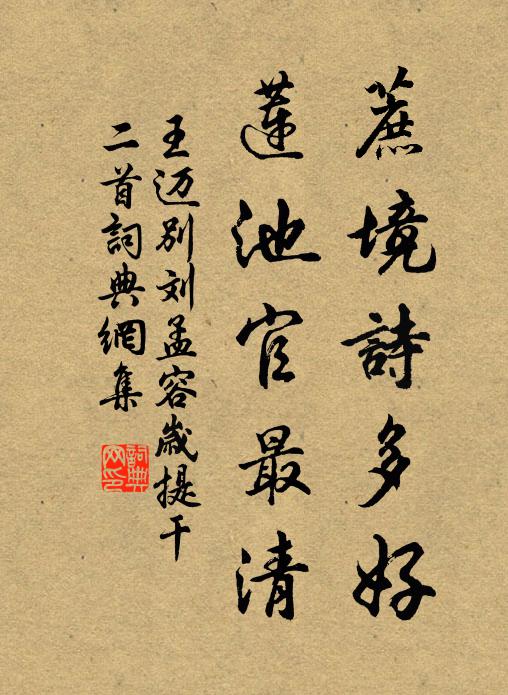 蔗境詩多好
蓮池官最清
王迈別刘孟容歲提干
二首詞典網集
詞典网印